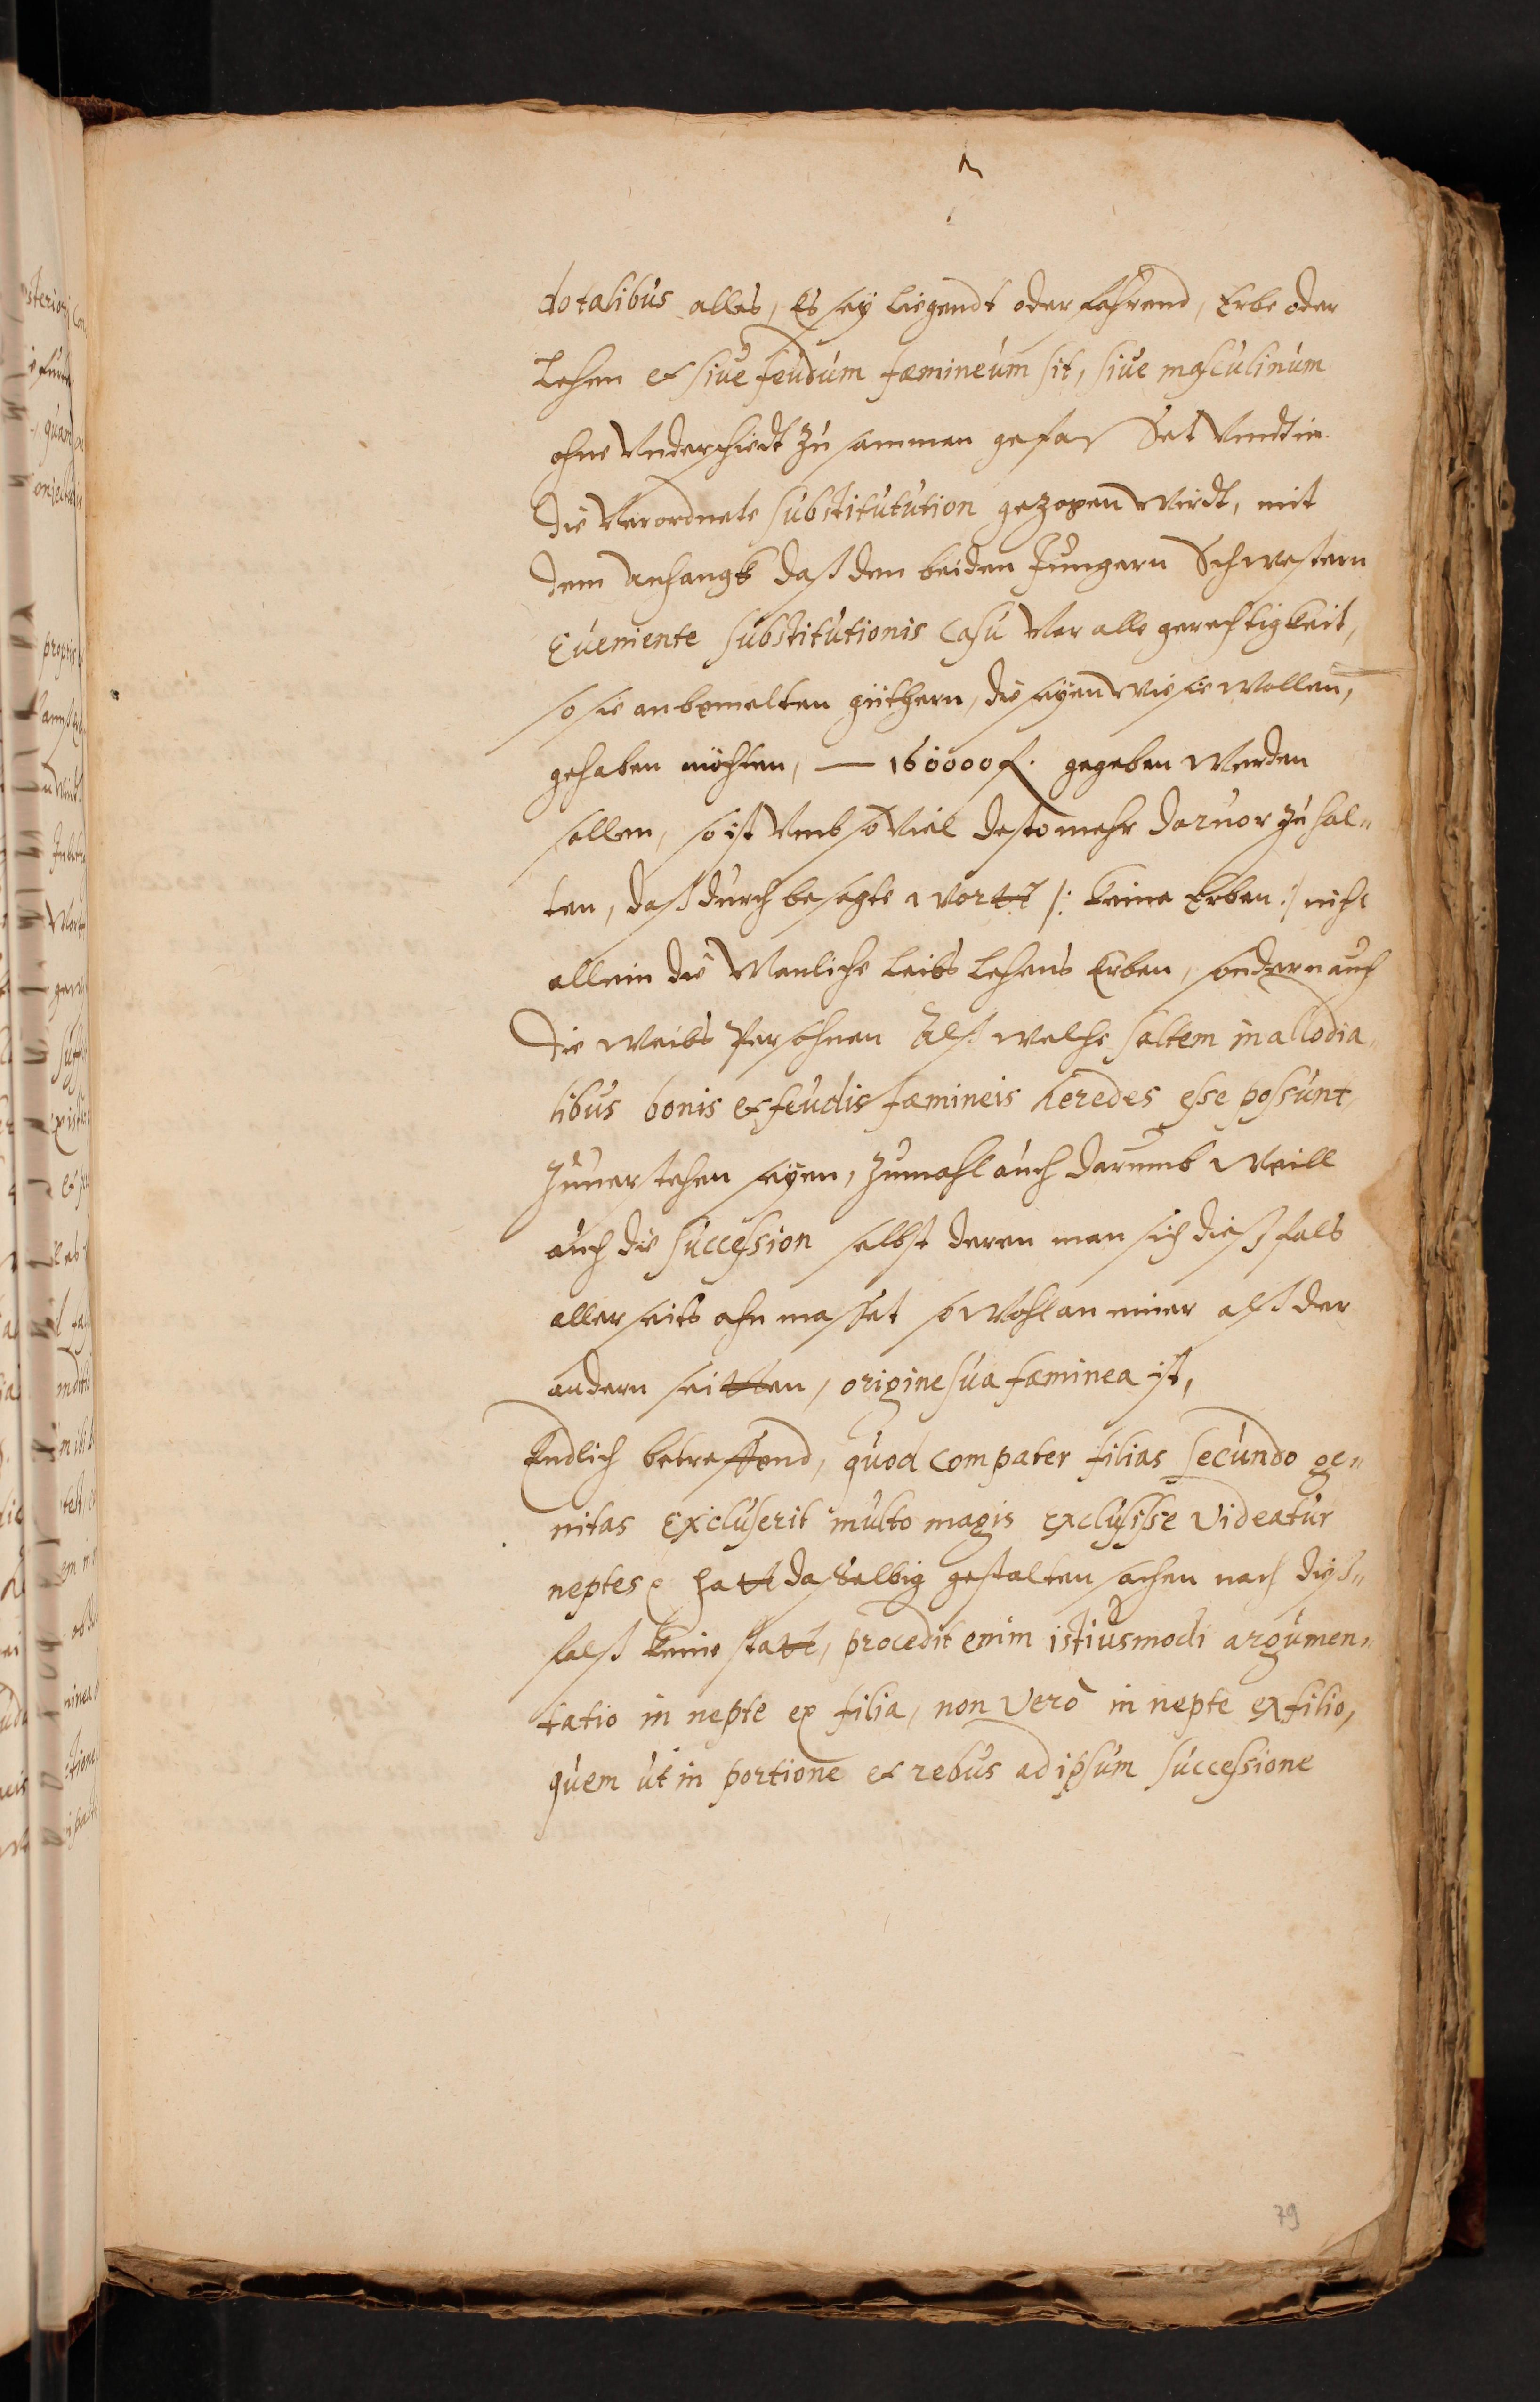 dotalibus alles, Es sey liegendt oder fahrend, Erbe oder
Lehen et siue feudum fæmineum sit, siue masculinum
ohne Vnderschiedt zusammen gefasset Vndt in
die Verordnete substitutution gezogen Wirdt, mit
dem Anhangk daß den beiden Jungern Schwestern
Eueniente substitutionis Casu Vor alle gerechtigkeit,
so sie an bemelten güthern, die seyen Wie sie Wollen,
gehaben möchten, — 160000 f. gegeben Werden
sollen, so ist Vmb so Viel desto mehr daruor zu hal„
ten, daß durch besagte wortt /: keine Erben :/ nicht
allein die Manliche Leibs Lehens Erben, sondern auch
die Weibs Persohnen Alß welche saltem in allodia„
libus bonis et feudis fæmineis heredes esse possunt
Zuuerstehen seyen, Zumahl auch darumb Weill
auch die succession selbst deren man sich dießfals
allerseits ahnmasset so Wohl an einer alß der
andern seitten, origine sua fæminea ist,
Endlich betreffend, quod compater filias secundo ge„
nitas excluserit multo magis exclusisse Videatur
neptes hatt dasselbig gestalten sachen nach dieß„
falß keine statt, procedit enim istiusmodi argumen„
tatio in nepte ex filia, non Verò in nepte ex filio,
quem ut in portione et rebus ad ipsum successione
79